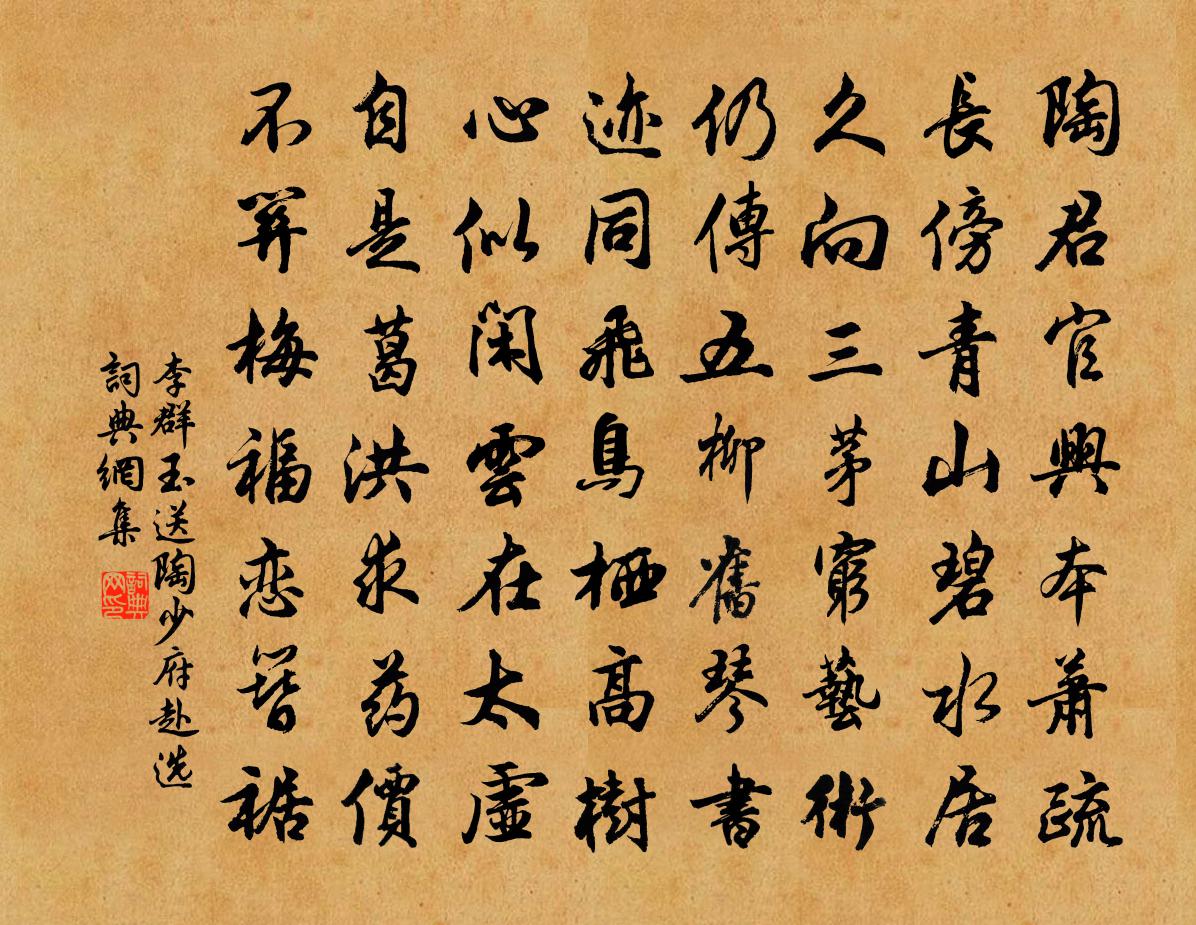 陶君官興本蕭疏
長傍青山碧水居
久向三茅窮藝術
仍傳五柳舊琴書
迹同飛鳥栖高樹
心似閑雲在太虛
自是葛洪求药價
不關梅福恋簪裾
李群玉送陶少府赴选
詞典網集
詞典网印